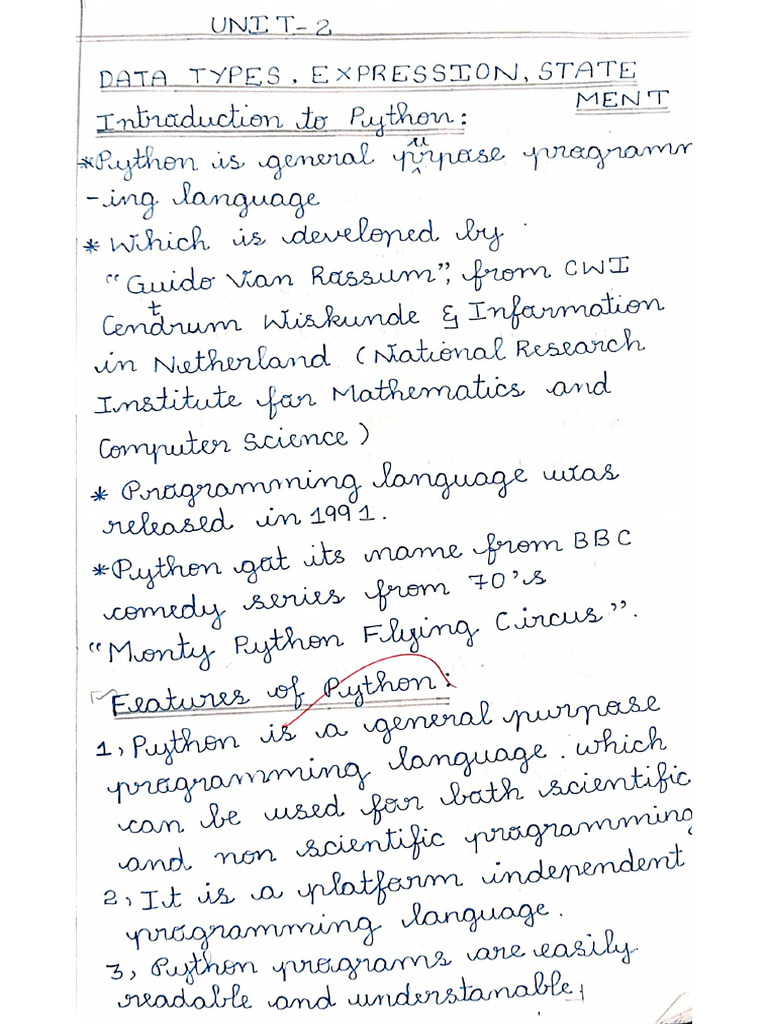 UNIT-2
DATA TYPES, EXPRESSION, STATE
MENT
Introduction to Python:
*Python is general purpose programm
-ing language
* Which is developed by
"Guido Van Rassum", from CWI
Centrum Wiskunde & Information
in Netherland (National Research
Institute for Mathematics and
Computer Science)
* Programming language was
released in 1991.
*Python got its name from BBC
comedy series from 70's
"Monty Python Flying Circus".
Features of Python:
1, Python is a general purpose
programming language. which
can be used for both scientific
and non scientific programming
2, It is a platform independent
programming language.
3, Python programs are easily
readable and understanable